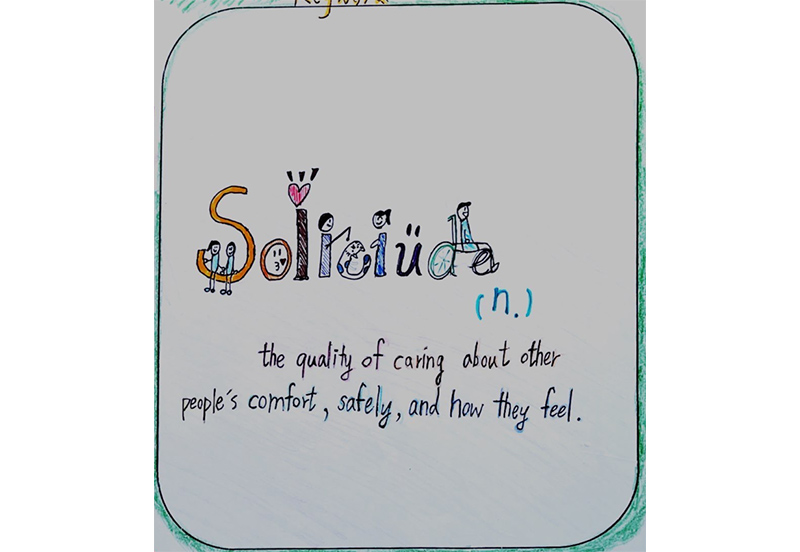 Soliciüde
(n.)
the quality of caring about other
people's comfort, safely, and how they feel.